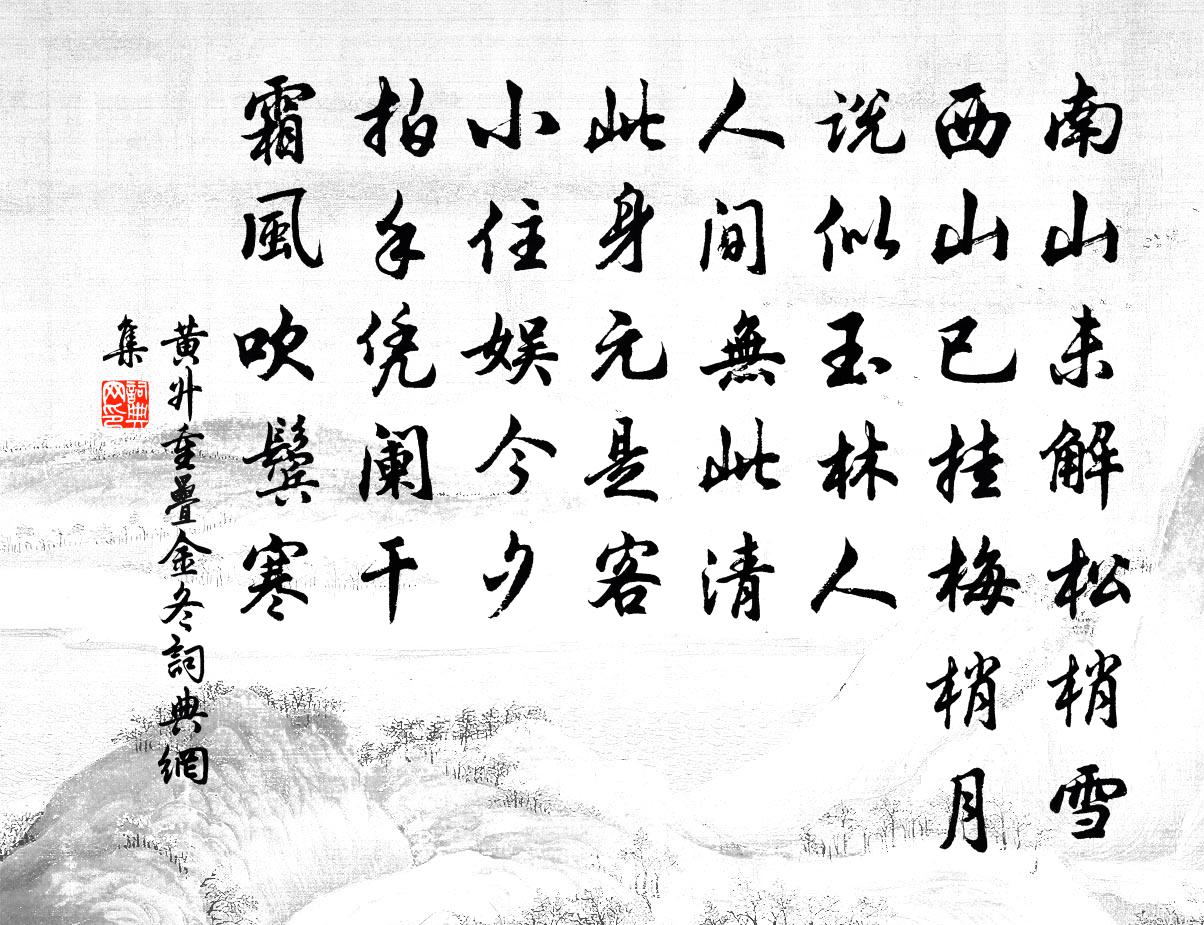 南山未解松梢雪
西山已挂梅梢月
説似玉林人
人間無此清
此身元是客
小住娯今夕
拍手凭阑干
霜風吹鬓寒
黄升重疊金冬詞典網
集
詞典网印